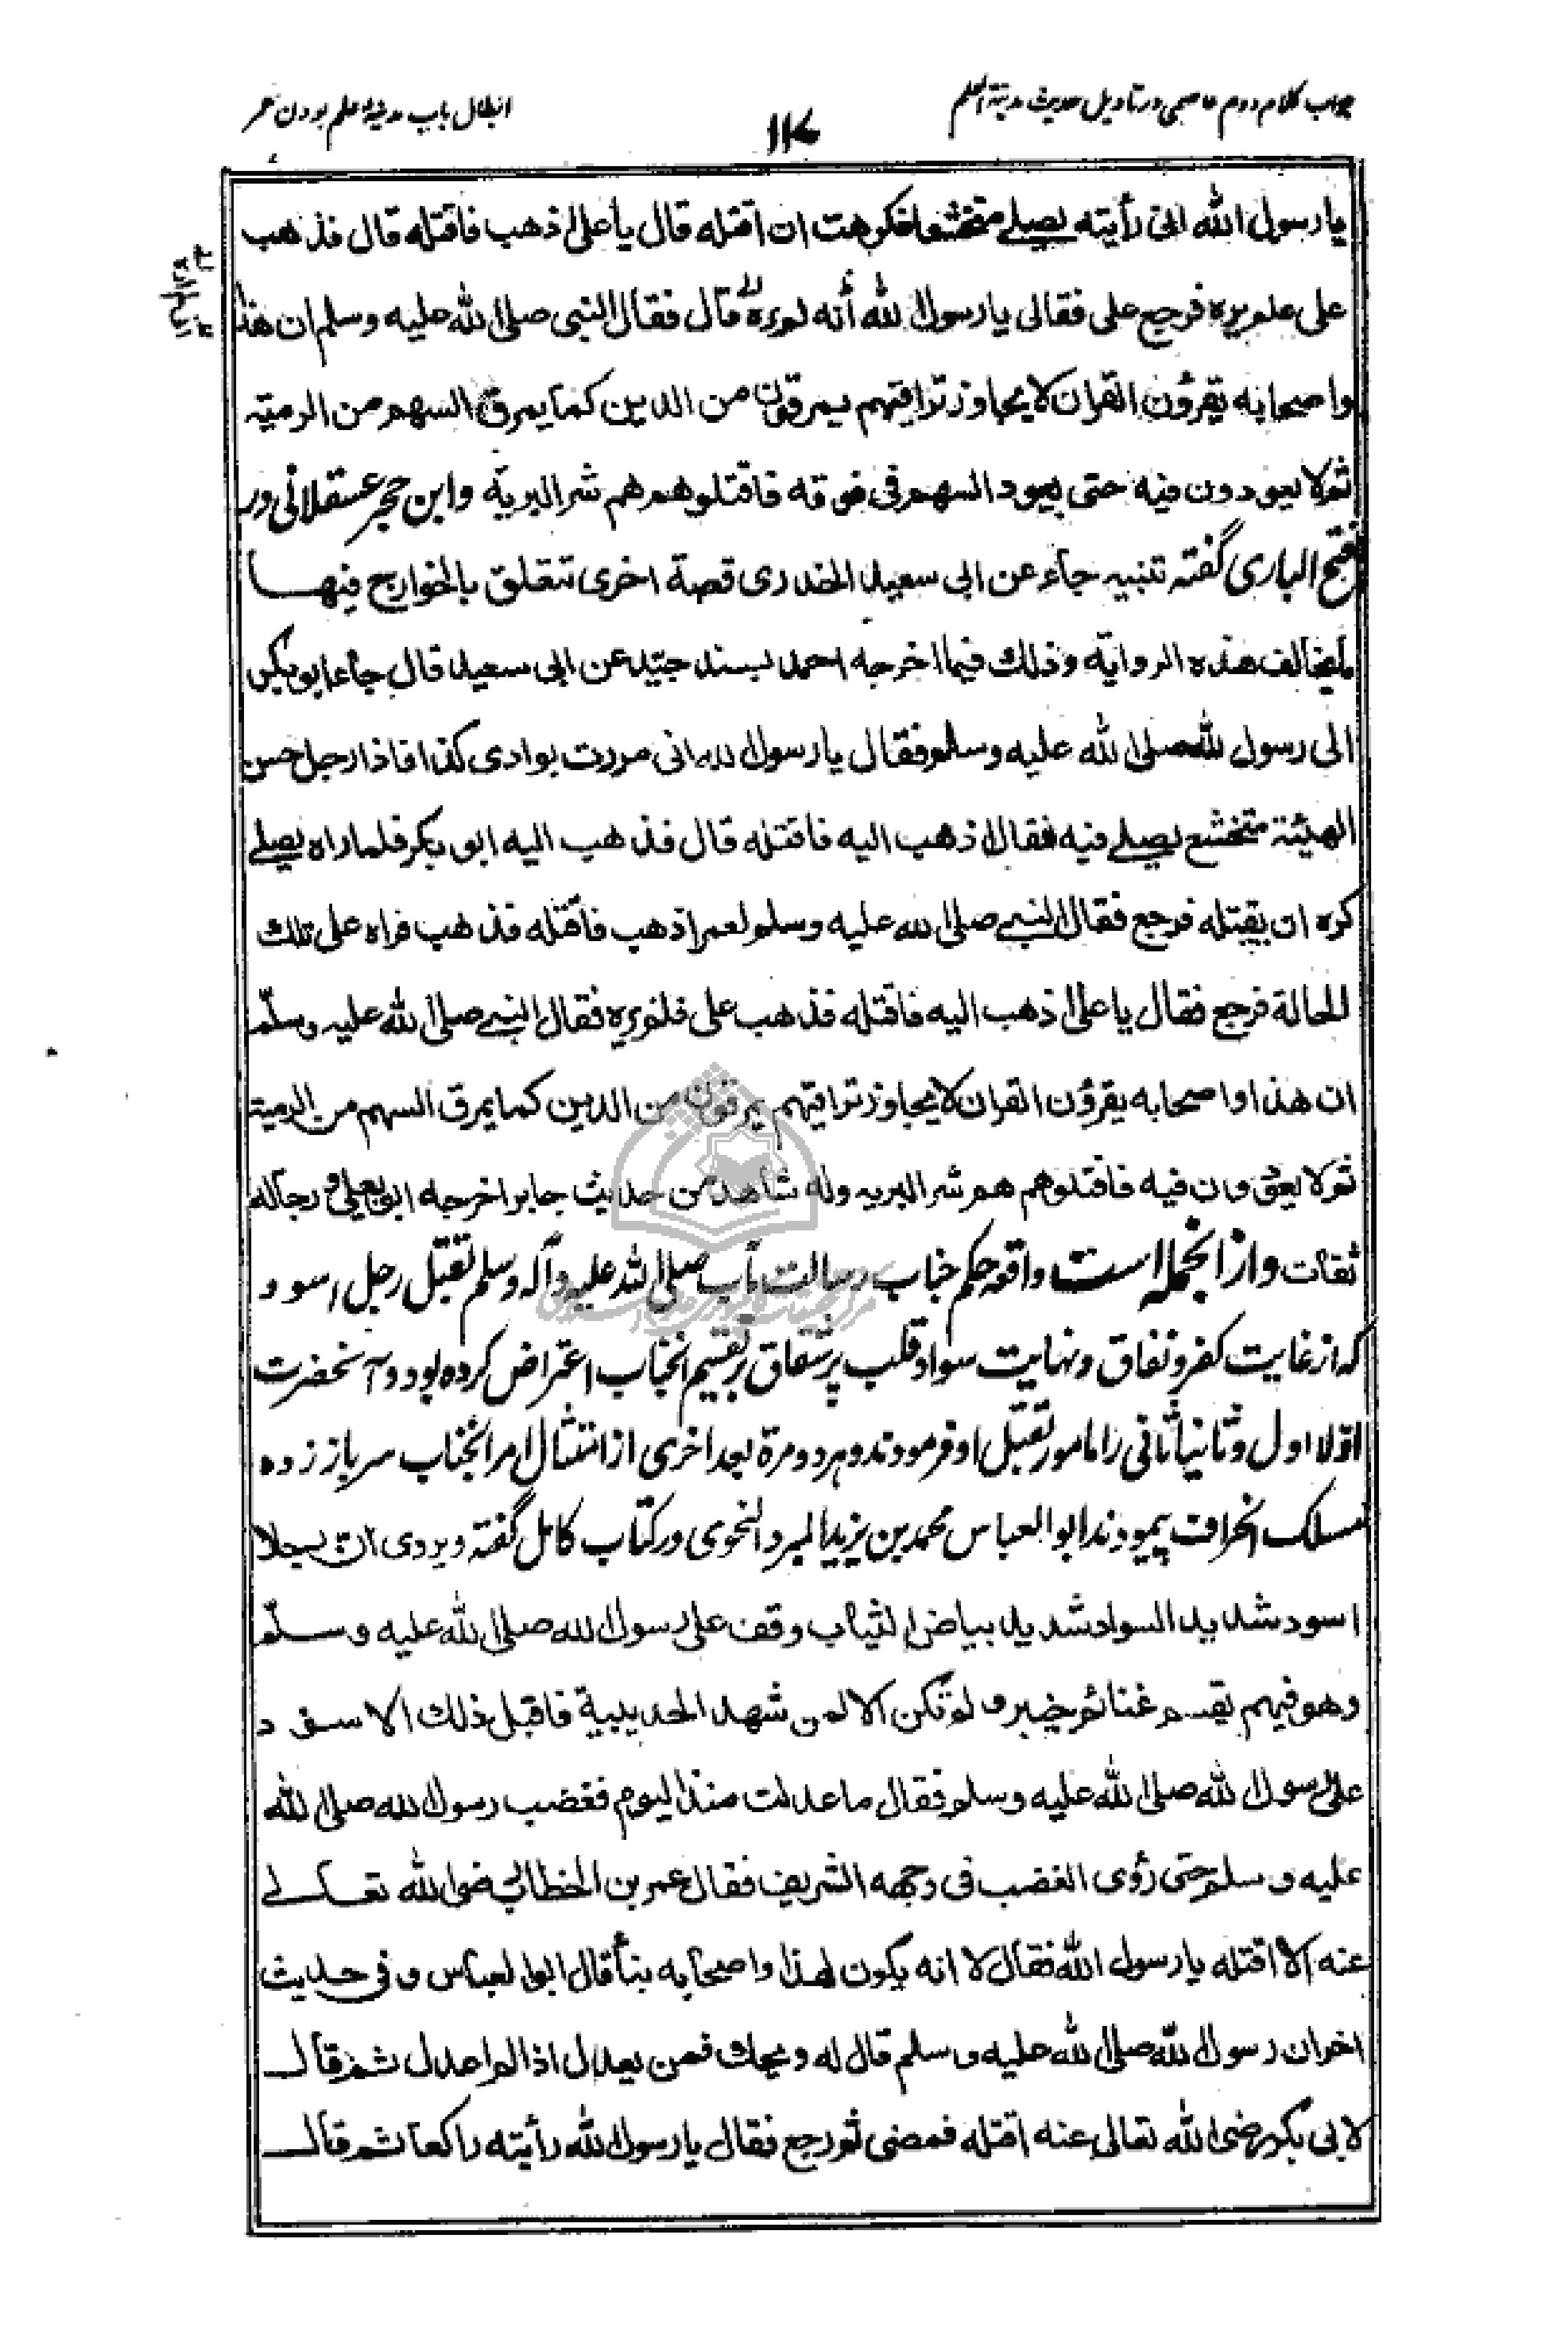 جواب کلام دوم عاصمی در تاویل حدیث مدینة العلم
۱۱۷
ابطال باب مدینهٔ علم بودن عمر
یا رسول الله انی رأیته یصلے متخشعا فکرهت ان اقتله قال یا علی اذهب فاقتله قال فذهب
علی فلم یره فرجع علی فقال یا رسول الله أنه لم یره قال فقال النبی صلی الله علیه وسلم ان هذا
واصحابه یقرؤن القران لا یجاوز تراقیهم یمرقون من الدین کما یمرق السهم من الرمیة
ثم لا یعودون فیه حتی یعود السهم فی فوقه فاقتلوهم هم شر البریة وابن حجر عسقلانی در
فتح الباری گفته تنبیه جاء عن ابی سعید الخدری قصة اخری تتعلق بالخوارج فیها
ما یخالف هذه الروایة وذلک فیما اخرجه احمد بسند جیّد عن ابی سعید قال جاء ابو بکر
الی رسول الله صلی الله علیه وسلم فقال یا رسول الله انی مررت بوادی کذا فاذا رجل حسن
الهیئة متخشع یصلے فیه فقال اذهب الیه فاقتله قال فذهب الیه ابو بکر فلما راه یصلے
کره ان یقتله فرجع فقال النبے صلی الله علیه وسلم لعمر اذهب فاقتله فذهب فراه علی تلک
الحالة فرجع فقال یا علی اذهب الیه فاقتله فذهب علی فلم یره فقال النبے صلی الله علیه وسلّم
ان هذا واصحابه یقرؤن القران لا یجاوز تراقیهم یمرقون من الدین کما یمرق السهم من الرمیة
ثم لا یعودون فیه فاقتلوهم هم شر البریه وله شاهد من حدیث جابر اخرجه ابو یعلی و رجاله
ثقات واز انجمله است واقعه حکم جناب رسالت مآب صلی الله علیه وآله وسلم بقتل رجل اسود
که از غایت کفر و نفاق و نهایت سواد قلب پر شقاق بر تقسیم انجناب اعتراض کرده بود و آنحضرت
اوّلا اول و ثانیا ثانی را مامور بقتل او فرمودند و هر دو مرة بعد اخری از امتثال امر انجناب سر باز زده
مسلک انحراف پیمودند ابو العباس محمد بن یزید المبرد النحوی در کتاب کامل گفته ویروی ان رجلا
اسود شدید السواد شدید بیاض الثیاب وقف علی رسول الله صلی الله علیه وسلّم
وهو فیهم یقسم غنائم خیبر و لم تکن الا لمن شهد الحدیبیة فاقبل ذلک الاسود
علی رسول الله صلی الله علیه وسلم فقال ما عدلت منذ الیوم فغضب رسول الله صلی الله
علیه وسلم حتی رؤی الغضب فی وجهه الشریف فقال عمر بن الخطاب رضی الله تعالے
عنه الا اقتله یا رسول الله فقال لا انه یکون لهذا واصحابه نبأ قال ابو العباس و فی حدیث
اخر ان رسول الله صلی الله علیه وسلم قال له ویحک فمن یعدل اذا لم اعدل ثم قال
لابی بکر رضی الله تعالی عنه اقتله فمضی ثم رجع فقال یا رسول الله رأیته راکعا ثم قال